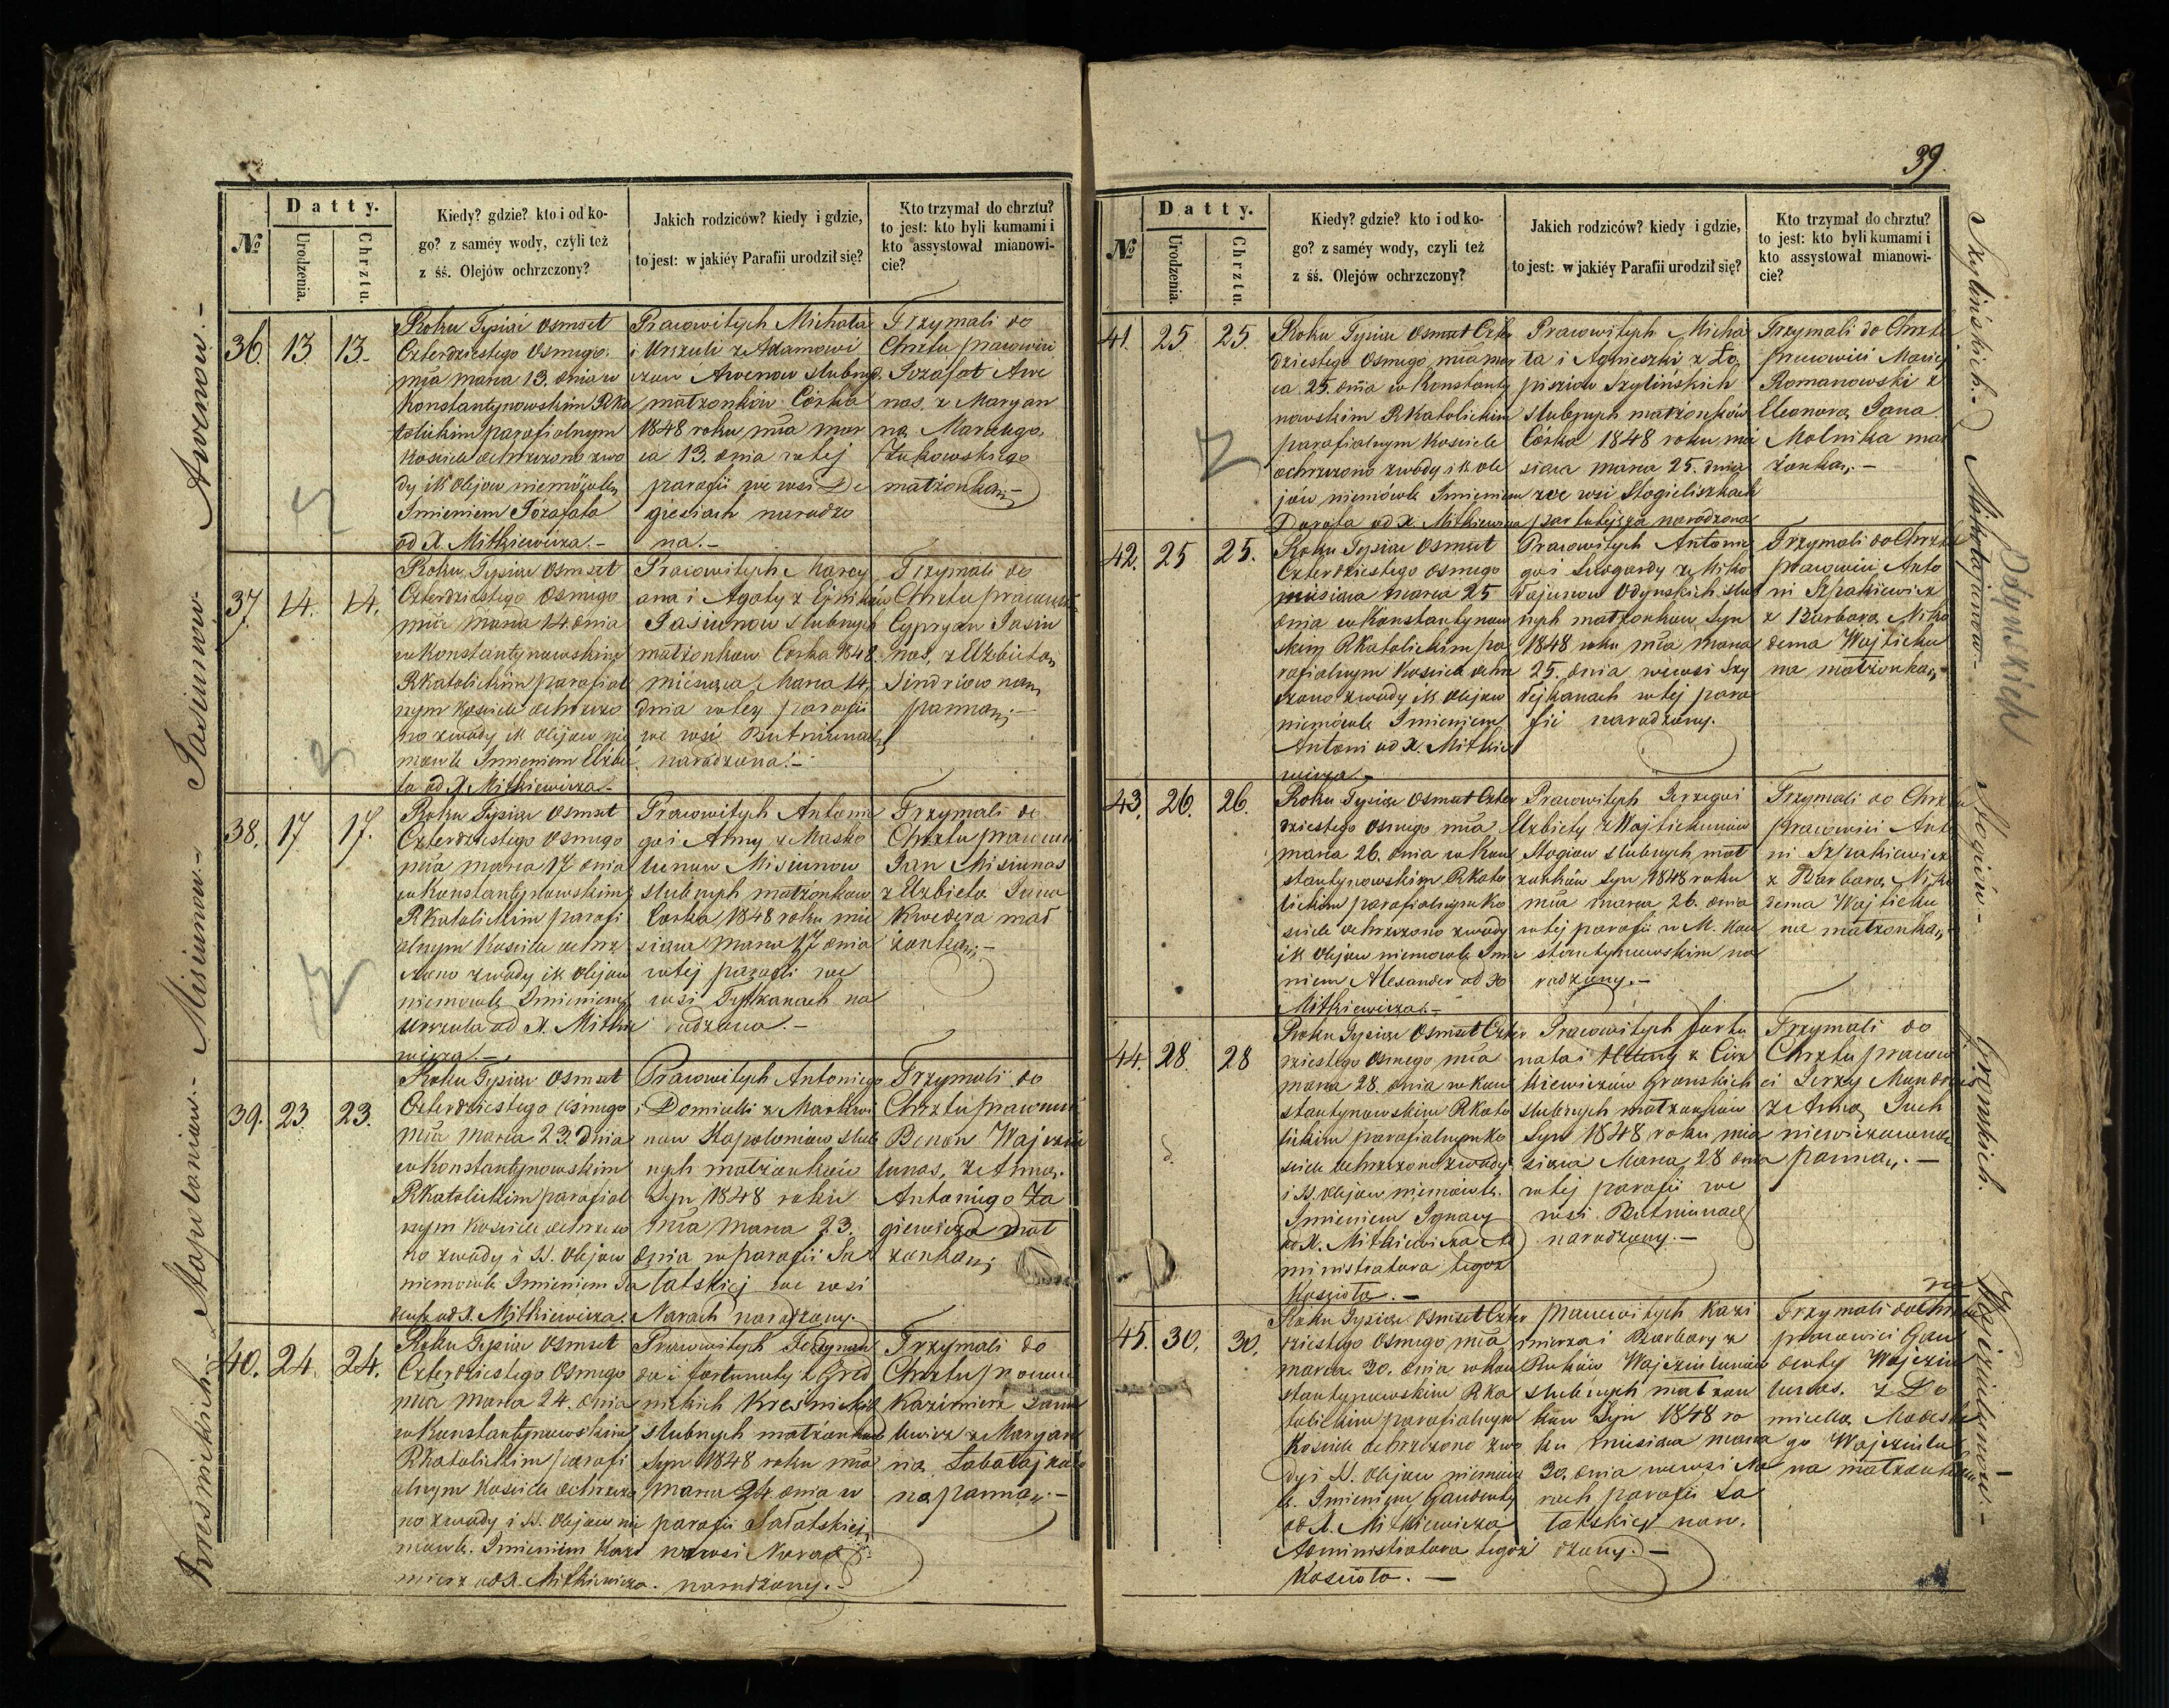 Datty.
№
Urodzenia.
Chrztu.
Kiedy? gdzie? kto i od ko-
go? z saméy wody, czyli też
z śś. Olejów ochrzczony?
Jakich rodziców? kiedy i gdzie,
to jest: w jakiéy Parafii urodził się?
Kto trzymał do chrztu?
to jest: kto byli kumami i
kto assystował mianowi-
cie?
Awenow.-
36. 13 13.
Roku Tysiąc Osmset
Czterdziestego Osmego
mca marca 13. dnia w
Konstantynowskim RKa
tolickim parafialnym
Kościele ochrzczono zwo
dy i k olejow niemowle
Imieniem Józafata
od X. Mitkiewicza.-
Pracowitych Michała
i Urszuli z Adamowi
czow Awenow slubnych
małżonków Córka
1848 roku mca mar
ca 13. dnia w tej
parafii we wsi De
giesiach narodzo
na.-
Trzymali do
Chrztu pracowici
Jozafat Awe
nas, z Maryan
ną Marcelego
Żukowskiego
małżonką,-
Jasiunow.-
37. 14. 14.
Roku Tysiąc Osmset
Czterdziestego Osmego
mca marca 14. dnia
w Konstantynowskim
RKatolickim parafial
nym Kościele ochrzczo
no z wody i k olejow nie
mowle Imieniem Elżbie
ta od X. Mitkiewicza.-
Pracowitych Marcy
ana i Agaty z
Jasiunow slubnych
małżonkow Corka 1848.
miesiąca Marca 14.
dnia w tey parafii
we wsi Butniunach
narodzona.-
Trzymali do
Chrztu pracowici
Cypryan Jasiu
nas, z Elżbietą
pannąj-
Misiunow.-
38. 17 17.
Roku Tysiąc Osmset
Czterdziestego Osmego
mca marca 17 dnia
w Konstantynowskim
RKatolickim parafi
alnym Kościele ochrz
czono z wody i k olejow
niemowle Imieniem
Urszula od X. Mitkie
wicza.-
Pracowitych Antonie
go i Anny z Masko
lunow Misiunow
slubnych małżonkow
Corka 1848 roku mie
siąca marca 17 dnia
w tej parafii we
wsi Tytkanach na
rodzona.-
Trzymali do
Chrztu pracowici
Jan Misiunas
z Elżbietą
Kwedera mał
żonką,-
Stapulaniow.-
39. 23. 23.
Roku Tysiąc Osmset
Czterdziestego Osmego
mca marca 23. dnia
w Konstantynowskim
RKatolickim parafial
nym Kościele ochrzczo
no z wody i S. olejow
niemowle Imieniem
od X. Mitkiewicza.
Pracowitych Antoniego
i Domicelli z
now Stapolaniow slub
nych małżonków
Syn 1848 roku
mca marca 23.
dnia w parafii Sa
łatskiej we wsi
Narach narodzony.
Trzymali do
Chrztu pracowici
Benon Wajczu
lunas, z Anną
Antoniego Za
giewicza mał
żonką,
Kreśnickich.-
40. 24. 24.
Roku Tysiąc Osmset
Czterdziestego Osmego
mca marca 24. dnia
w Konstantynowskim
RKatolickim parafi
alnym Kościele ochrzczo
no z wody i S. Olejow nie
mowle. Imieniem Kazi
mierz od X. Mitkiewicza.
Pracowitych Ferdynan
da i Fortunaty z
Kreśnickich
slubnych małżonkow
Syn 1848 roku mca
marca 24 dnia w
parafii Sałatskiej
we wsi Narach
narodzony.-
Trzymali do
Chrztu pracowi
Kazimierz
z Maryan
ną
ną panną.-
39.
Datty.
№
Urodzenia.
Chrztu.
Kiedy? gdzie? kto i od ko-
go? z saméy wody, czyli też
z śś. Olejów ochrzczony?
Jakich rodziców? kiedy i gdzie,
to jest: w jakiéy Parafii urodził się?
Kto trzymał do chrztu?
to jest: kto byli kumami i
kto assystował mianowi-
cie?
Szylińskich.-
41. 25 25.
Roku Tysiąc Osmset Czter
dziestego Osmego mca mar
ca 25. dnia w Konstanty
nowskim RKatolickim
parafialnym Kościele
ochrzczono z wody i k ole
jów niemówle Imieniem
Dorota od X. Mitkiewicza
Pracowitych Micha
ła i Agnieszki z Ło
pisziow Szylińskich
slubnych małżonków
Córka 1848 roku mie
siąca marca 25. dnia
we wsi Stogieliszkach
par tutejszą narodzona
Trzymali do Chrztu
pracowici Maciej
Romanowski z
Eleonorą Jana
Molnika mał
żonką.-
Mikołajunow.-
Odyńskich
42. 25 25.
Roku Tysiąc Osmset
Czterdziestego Osmego
miesiąca marca 25
dnia w Konstantynow
skim RKatolickim pa
rafialnym Kościele ochrz
czono z wody i k olejow
niemówle Imieniem
Antoni od X. Mitkie
wicza.-
Pracowitych Antonie
go i Luogardy z Miko
łajunow Odynskich slub
nych małżonkow Syn
1848 roku mca marca
25. dnia we wsi
w tej para
fii narodzony.
Trzymali do Chrztu
pracowici Anto
ni Szpakiewicz
z Barbarą Niko
dema Wajtieku
na małżonką,-
Stogiów.-
43. 26. 26.
Roku Tysiąc Osmset Czter
dziestego Osmego mca
marca 26. dnia w Kon
stantynowskim RKato
lickim parafialnym Ko
ściele ochrzczono z wody
i k olejow niemowle Imie
niem Alexander od X
Mitkiewicza.-
Pracowitych Jerzego i
Elżbiety z Wajtiekunow
Stogiow slubnych mał
żonków Syn 1848 roku
mca marca 26. dnia
w tej parafii w M. Kon
stantynowskim na
rodzony.-
Trzymali do Chrztu
pracowici Anto
ni Szpakiewicz
z Barbarą Niko
dema Wajtieku
na małżonką,-
Gronskich.
44. 28. 28
Roku Tysiąc Osmset Czter
dziestego Osmego mca
marca 28. dnia w Kon
stantynowskim RKato
lickim parafialnym Ko
ściele ochrzczono z wody
i S. olejow niemówle.
Imieniem Ignacy
od X. Mitkiewicza Ad
ministratora tegoż
Kościoła.-
Pracowitych Fortu
nata i Heleny z
kiewiczów Gronskich
slubnych małżonków
Syn 1848 roku mie
siąca Marca 28 dnia
w tej parafii we
wsi Butniunach
narodzony.-
Trzymali do
Chrztu pracowi
ci Jerzy
z Anną Juch
niewiczowną
panną.-
Wajcziulunow.-
45. 30. 30.
Roku Tysiąc Osmset Czter
dziestego Osmego mca
marca. 30. dnia w Kon
stantynowskim RKa
tolickim parafialnym
Kościele ochrzczono z wo
dy i S. olejow niemow
le. Imieniem Gaudenty
od X. Mitkiewicza
Administratora tegoż
Kościoła.-
Pracowitych Kazi
mierza i Barbary z
Wajcziulunow
slubnych małżon
kow Syn 1848 ro
ku miesiąca marca
30. dnia we wsi Na
rach parafii Sa
łatskiej naro
dzony.-
Trzymali do Chrztu
pracowici Gau
denty Wajcziu
lunas. z Do
micellą Modeste
go Wajcziulu
na małżonką